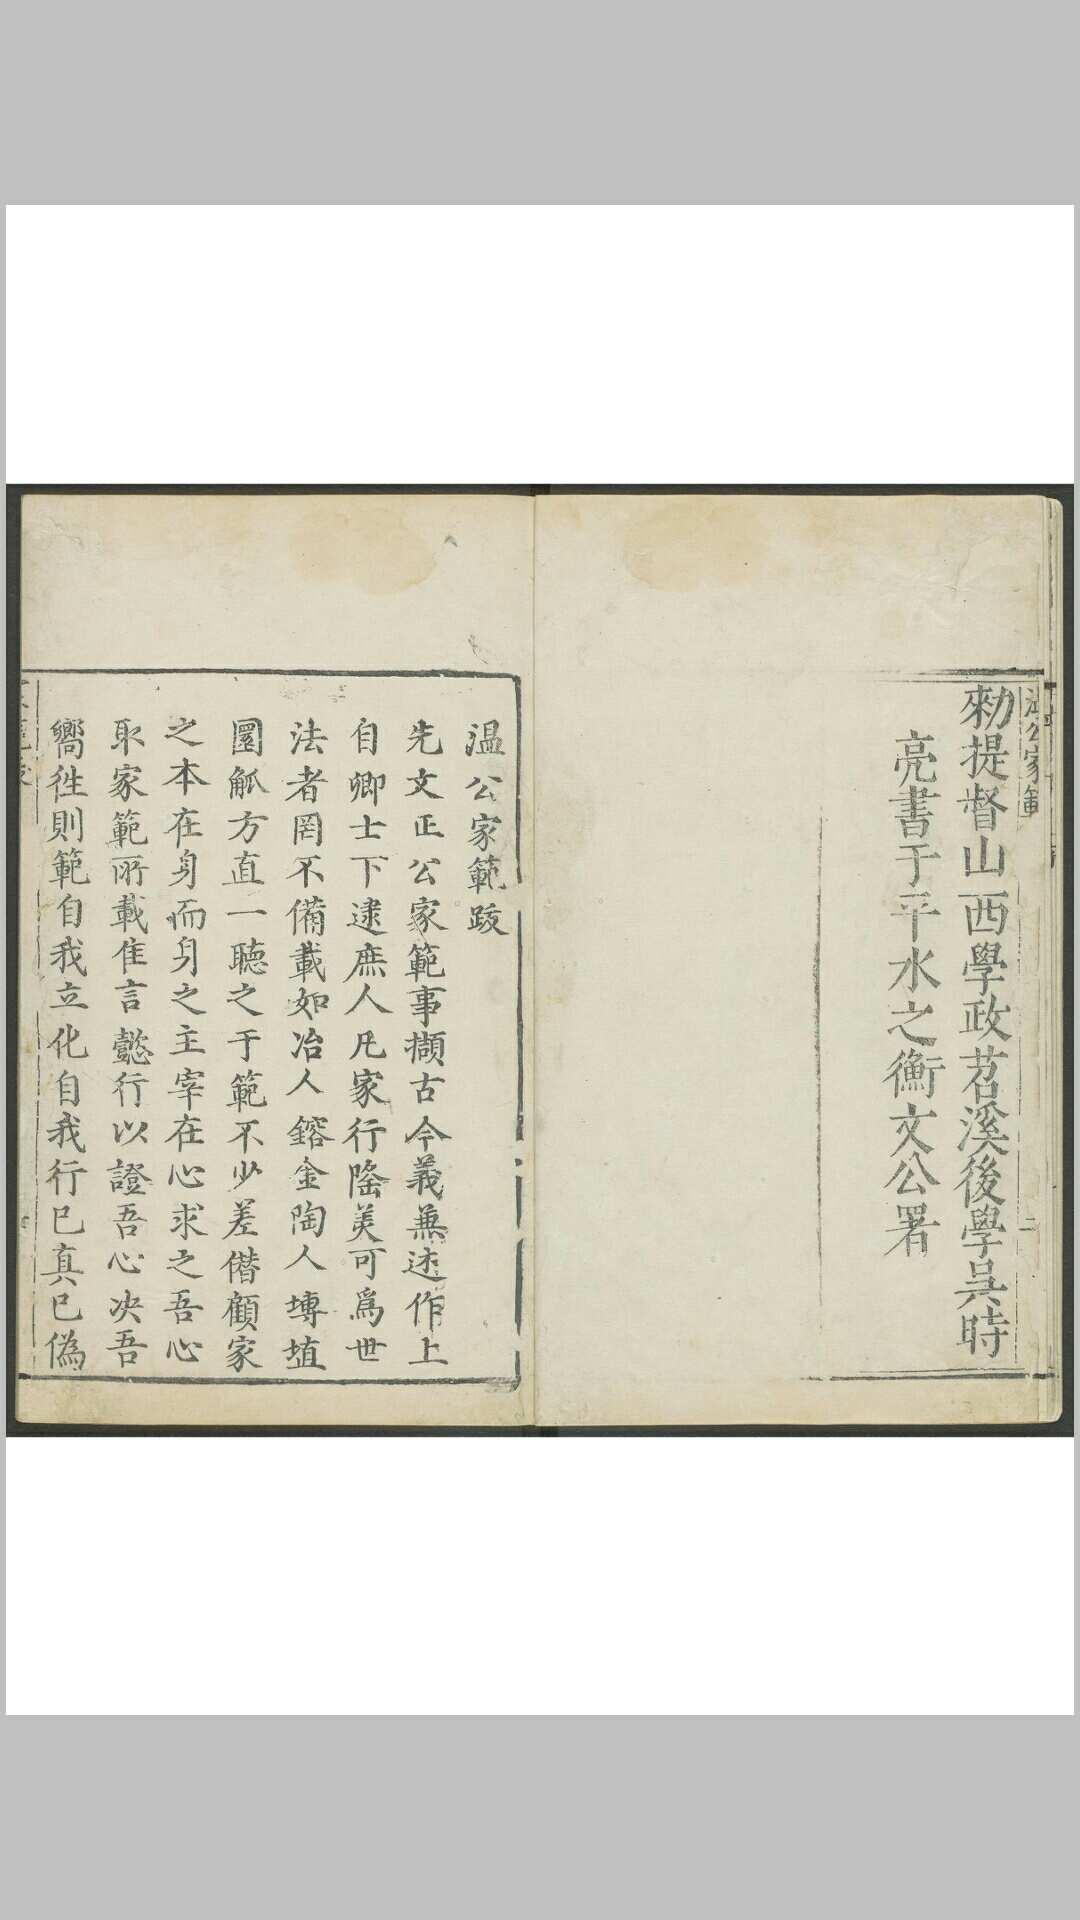 溫公家範
二
勑提督山西學政苕溪後學吳時
亮書于平水之衡文公署
温公家範跋
先文正公家範事擷古今義兼述作上
自卿士下逮庶人凡家行隆美可爲世
法者罔不備載如冶人鎔金陶人埏埴
圜觚方直一聽之于範不少差僭顧家
之本在身而身之主宰在心求之吾心
取家範所載隹言懿行以證吾心决吾
嚮徃則範自我立化自我行巳真巳偽